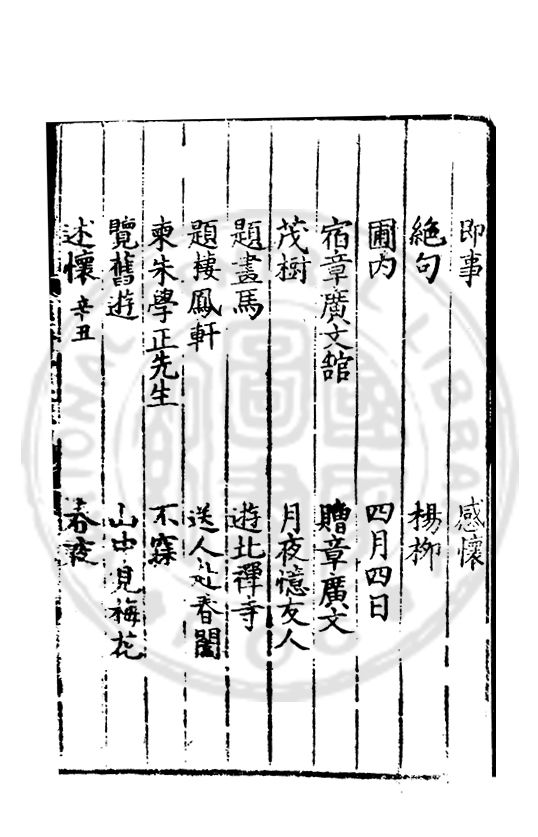 即事 感懷
絕句 楊柳
圃內 四月四日
宿章廣文舘 贈章廣文
茂樹 月夜憶友人
題畫馬 遊北禪寺
題棲鳳軒 送人赴春闈
柬朱學正先生 不寐
覽舊遊 山中見梅花
述懷 辛丑 春夜